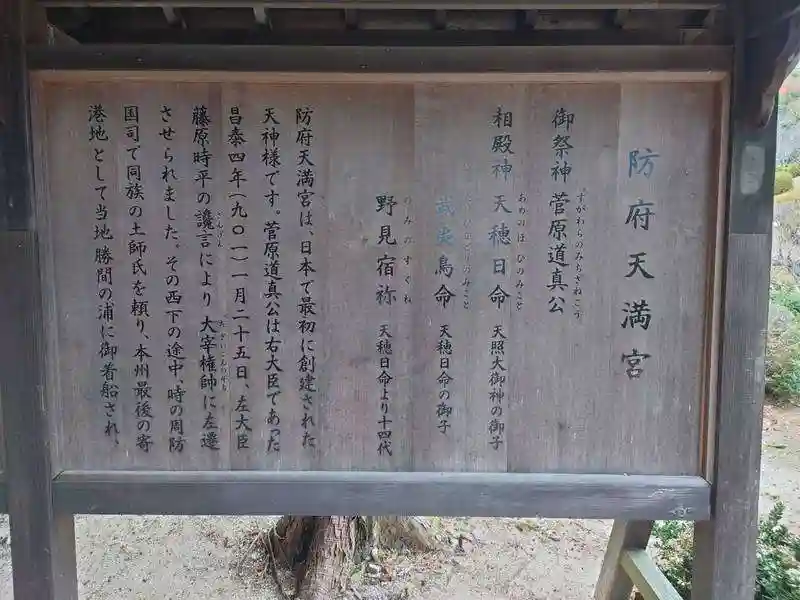 防府天満宮
御祭神 菅原道真公
すがわらのみちざねこう
相殿神 天穂日命 天照大御神の御子
あめのほひのみこと
武夷鳥命 天穂日命の御子
野見宿祢 天穂日命より十四代
のみのすくね
防府天満宮は、日本で最初に創建された
天神様です。菅原道真公は右大臣であった
昌泰四年(九〇一)一月二十五日、左大臣
藤原時平の讒言により大宰権帥に左遷
ざんげん
させられました。その西下の途中、時の周防
国司で同族の土師氏を頼り、本州最後の寄
港地として当地勝間の浦に御着船され、